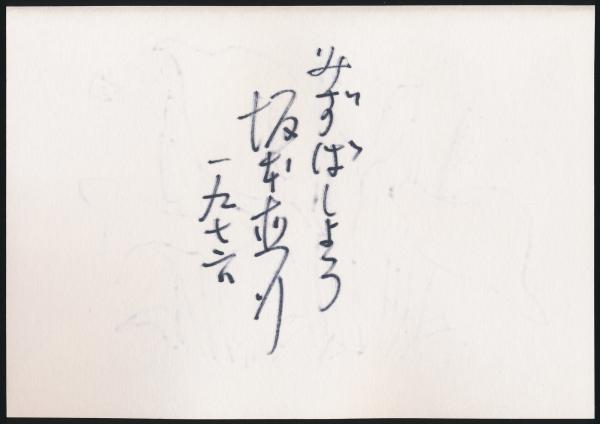 みずばしょう
坂本直行
一九七六